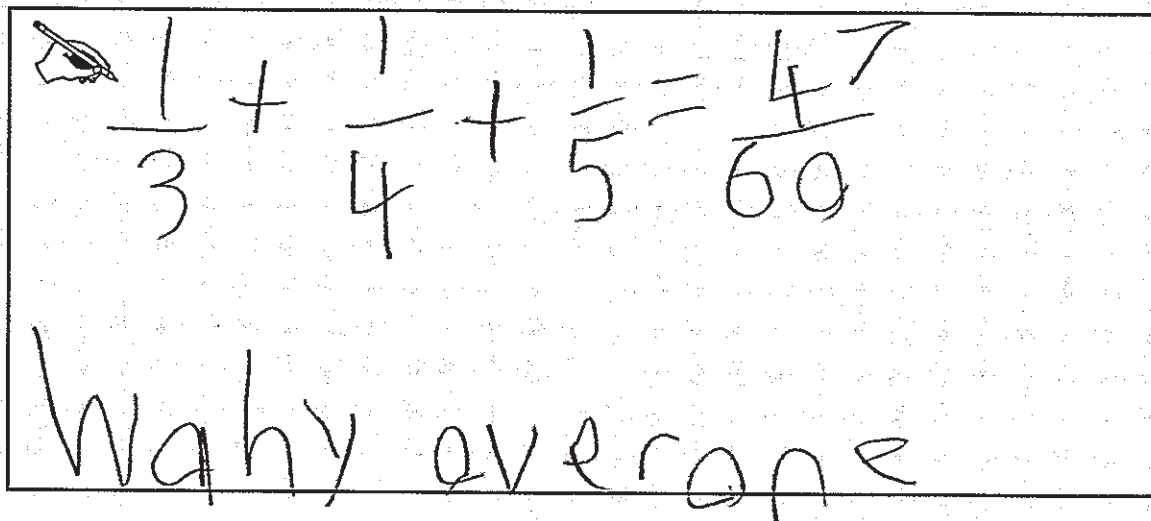 1/3 + 1/4 + 1/5 = 47/60
Wahy over one